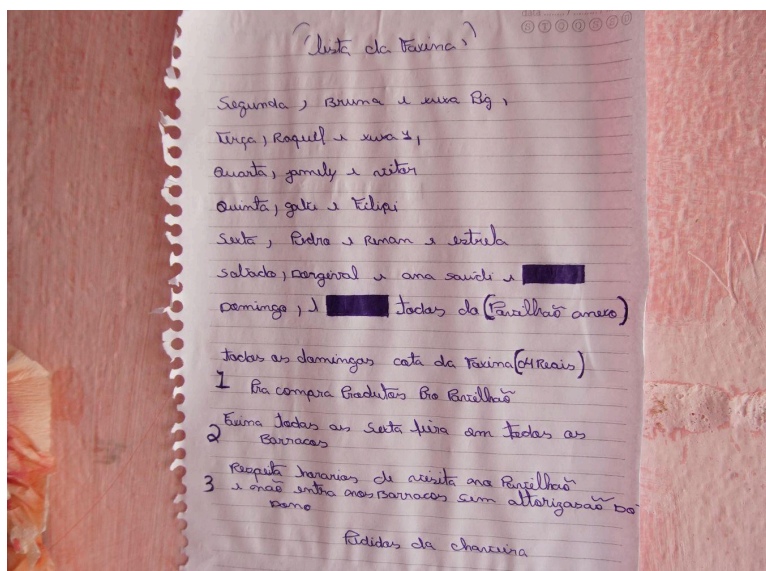 (lista da Faxina,)
Segunda, Bruna e xuxa Big,
Terça, Raquel e xuxa 1,
Quarta, jamily e vitor
Quinta, gabi e Felipi
Sexta, Pedro e Renan e estrela
sabado, Dorgival e ana saudi e
Domingo, e todas da (Pavilhaõ anexo)
todas as domingas cota da Faxina (04 Reais)
1 Pra compra Produtos Pro Pavilhaõ
Faxina todas as sexta feira em todas as
2 Barracas
Respeita horarios de visita no Pavilhaõ
3 e não entra nos Barracos sem altorizasaõ DO
Dono
Pedidos da